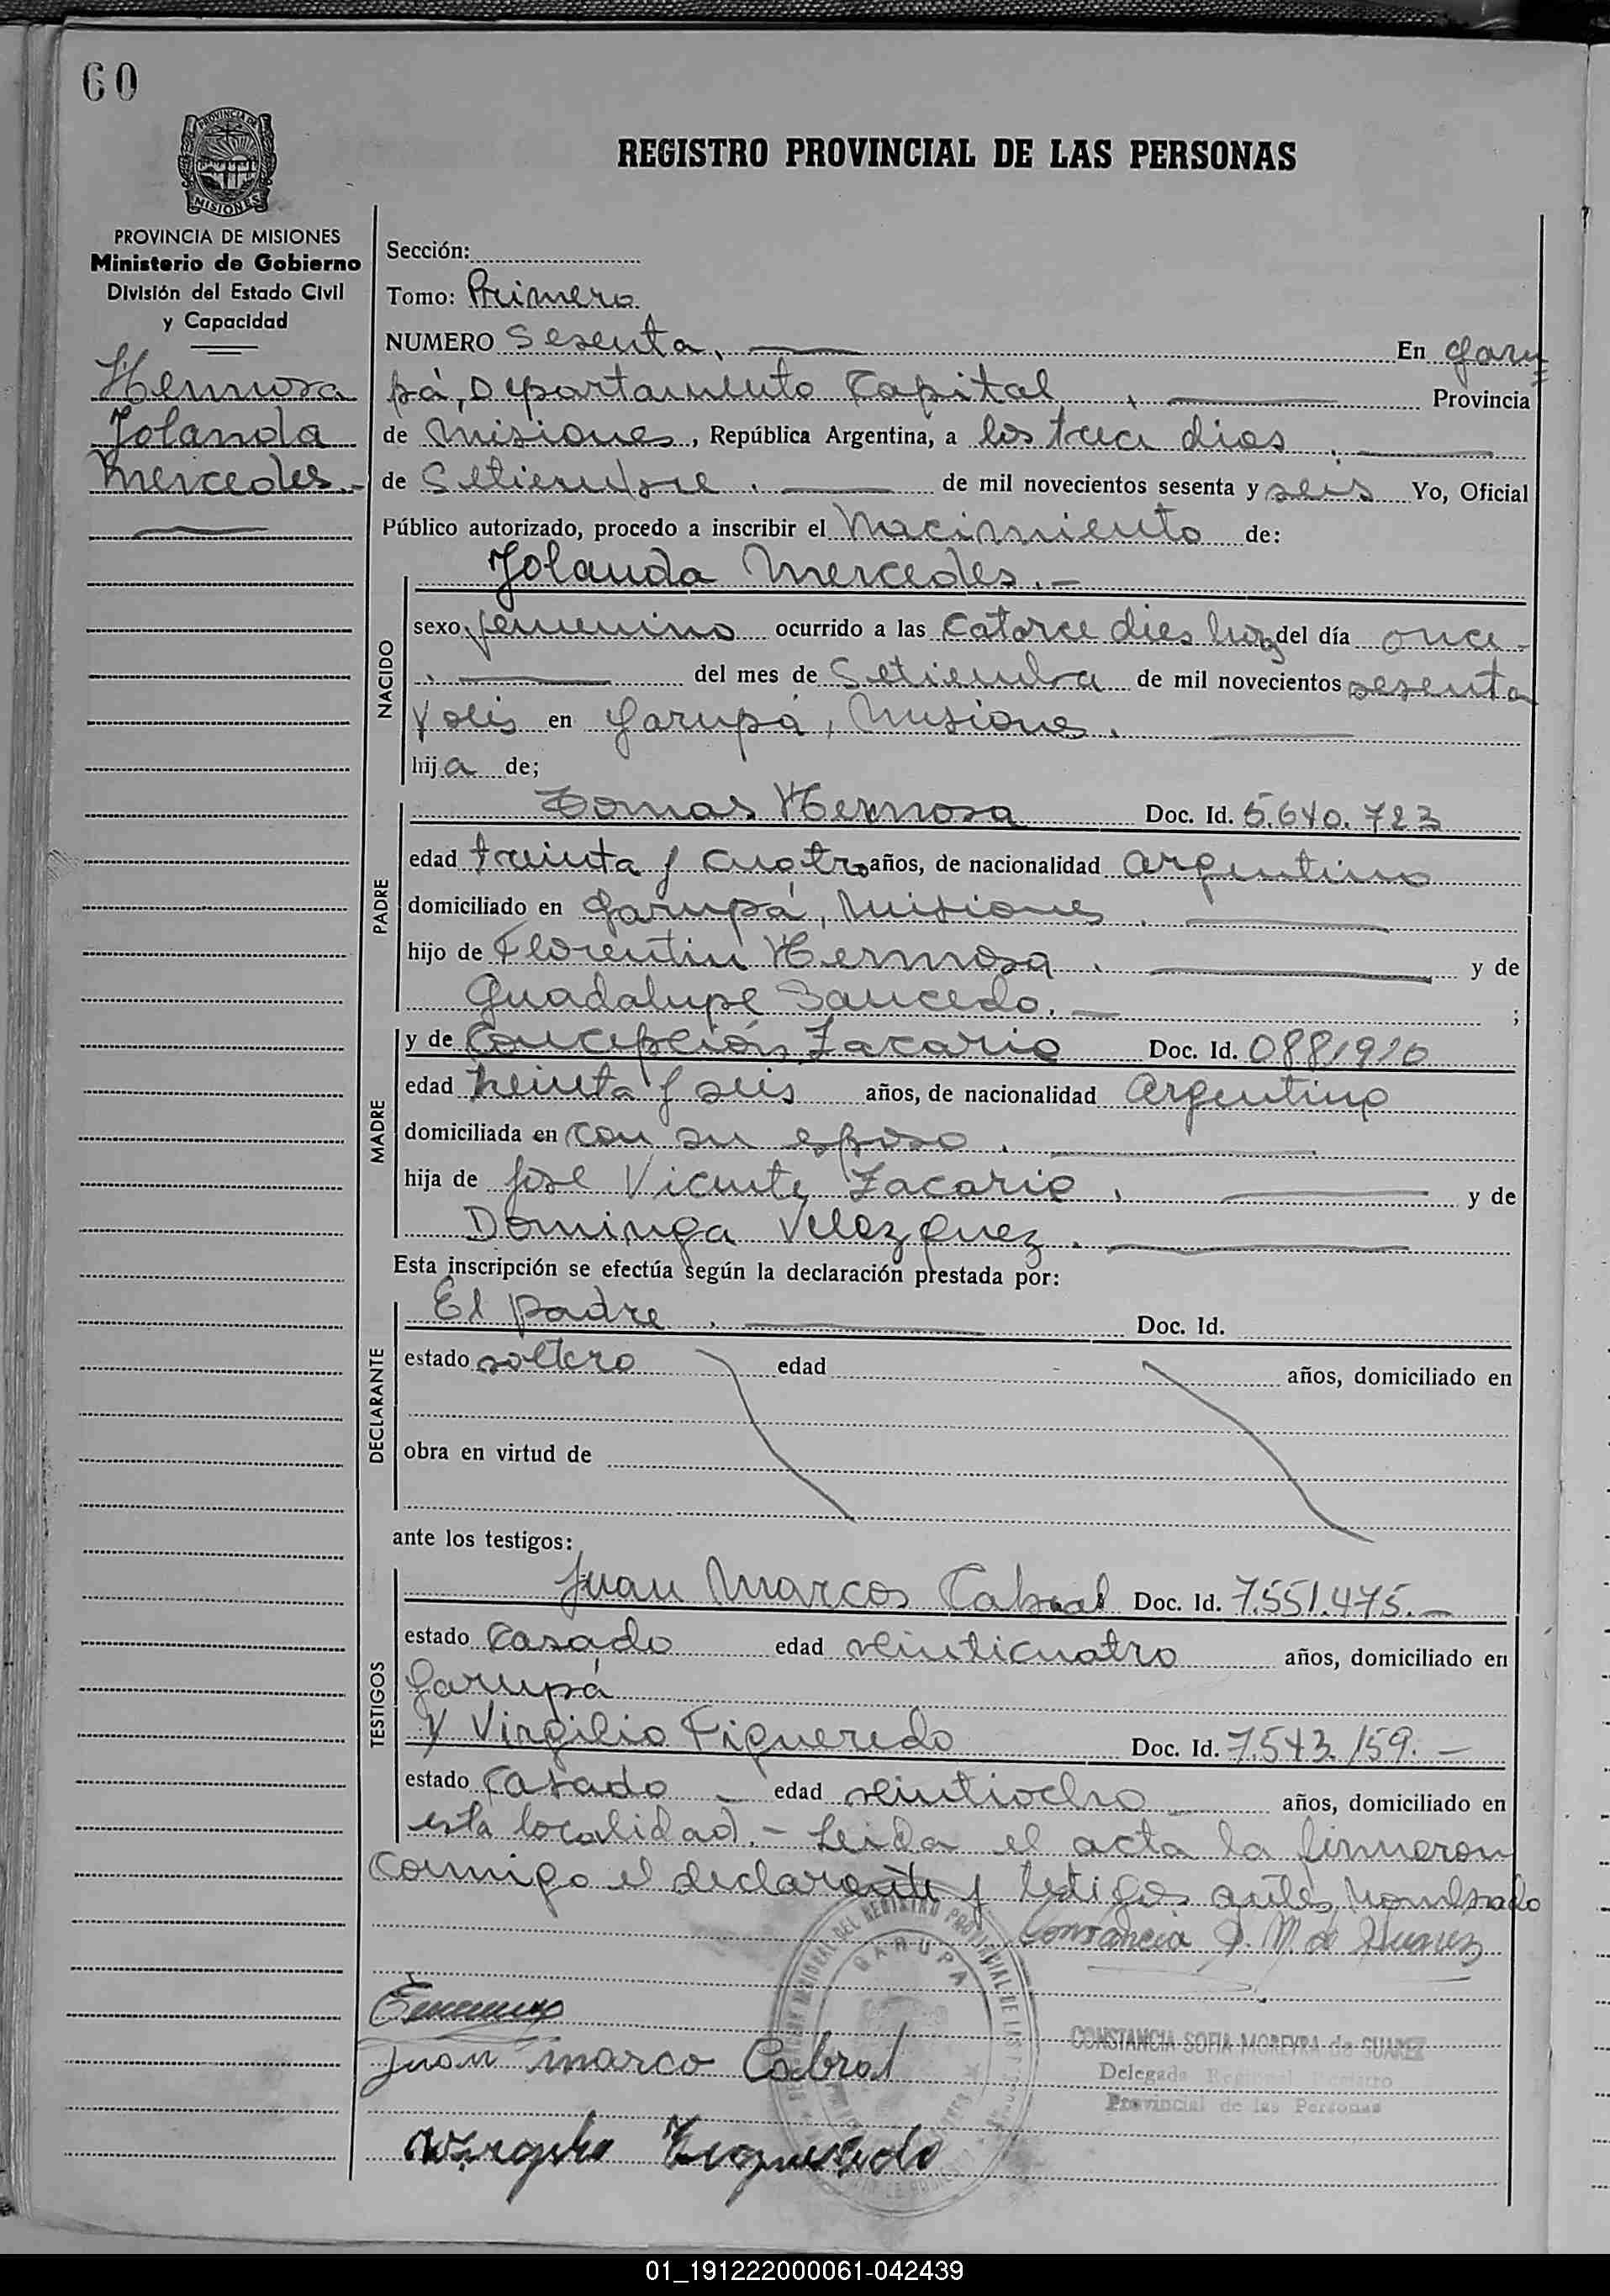 60
PROVINCIA DE
MISIONES
REGISTRO PROVINCIAL DE LAS PERSONAS
PROVINCIA DE MISIONES
Ministerio de Gobierno
División del Estado Civil
y Capacidad
Hermosa
Jolanda
Mercedes.-
Sección:
Tomo: Primero
NUMERO Sesenta, En Garu
pá, Departamento Capital, Provincia
de Misiones, República Argentina, a los trece dias
de Setiembre, de mil novecientos sesenta y seis Yo, Oficial
Público autorizado, procedo a inscribir el Nacimiento de:
Jolanda Mercedes.-
NACIDO
sexo femenino ocurrido a las catorce dies del día once-
del mes de Setiembre de mil novecientos sesenta
y seis en Garupá, Misiones.
hija de;
PADRE
Tomas Hermosa Doc. Id. 5.640.723
edad treinta y cuatro años, de nacionalidad argentino
domiciliado en Garupá, Misiones.
hijo de Florentin Hermosa. y de
Guadalupe Saucedo.- ;
MADRE
y de Concepción Zacaria Doc. Id. 0881920
edad treinta y seis años, de nacionalidad Argentina
domiciliada en con su esposo.
hija de José Vicente Zacaria, y de
Dominga Velazquez.
Esta inscripción se efectúa según la declaración prestada por:
DECLARANTE
El padre. Doc. Id.
estado soltero edad años, domiciliado en
obra en virtud de
ante los testigos:
TESTIGOS
Juan Marcos Cabral Doc. Id. 7.551.475.-
estado Casado edad veinticuatro años, domiciliado en
Garupá
y Virgilio Figueredo Doc. Id. 7.543.159.-
estado Casado - edad veintiocho años, domiciliado en
esta localidad.- Leida el acta la firmaron
conmigo el declarante y testigos antes nombrado
Constancia S. M. de Suarez
GARUPA
Juan marco Cabral
CONSTANCIA SOFIA MOREYRA de SUAREZ
Delegada Regional Registro
Provincial de las Personas
Virgilio Figueredo
01_191222000061-042439